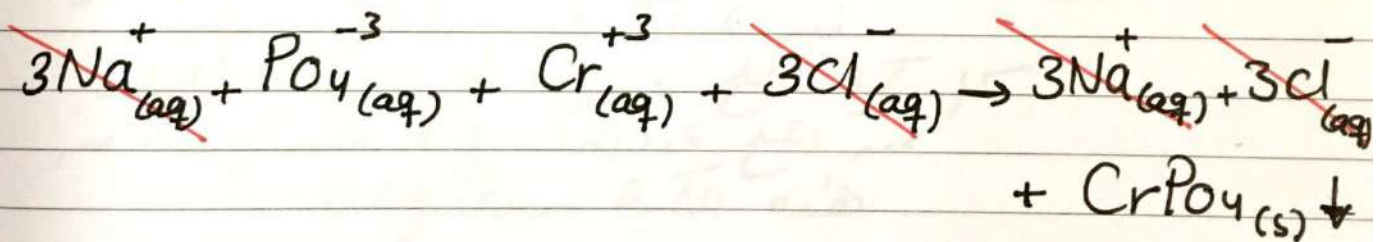 3Na⁺(aq) + Po₄⁻³(aq) + Cr⁺³(aq) + 3Cl⁻(aq) → 3Na⁺(aq) + 3Cl⁻(aq)
+ CrPo₄(s) ↓